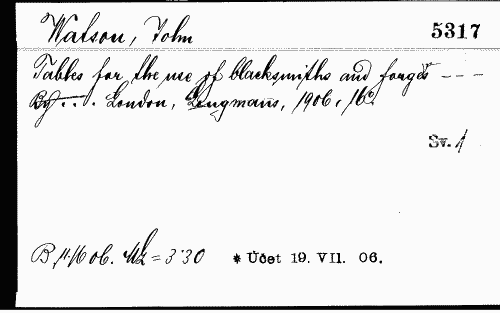 Watson, John 5317
Tables for the use of blacksmiths and forges - - -
By . . . London, Longmans, 1906, 16°.
Sv. 1
B, 06. Mk = 3·30 * Účet 19. VII. 06.